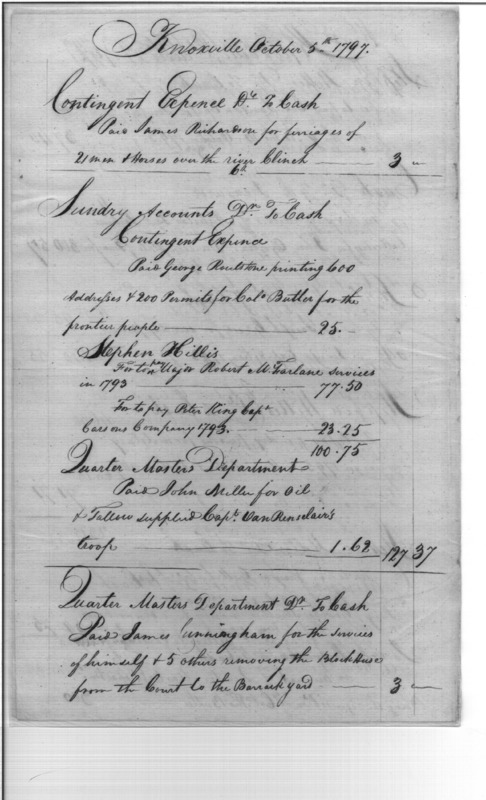 Knoxville October 5th 1797.
Contingent Expence Dr. To Cash
Paid James Richardson for ferriages of
21 men & Horses over the river Clinch — 3 —
6th
Sundry Accounts Drs. To Cash
Contingent Expence
Paid George Roulstone printing 600
Addresses & 200 Permits for Colo. Butler for the
frontier people — 25.—
Stephen Hillis
For to pay Major Robert McFarlane services
in 1793 77.50
For to pay Peter King Capt.
Company 1793. — 23.25
100.75
Quarter Masters Department
Paid John Miller for Oil
& Tallow supplied Capt. Van Renselair's
troop 1.62 127 37
Quarter Masters Department Dr. To Cash
Paid James Cunningham for the services
of himself & 5 others removing the Block House
from the Court to the Barrack yard — 3 —